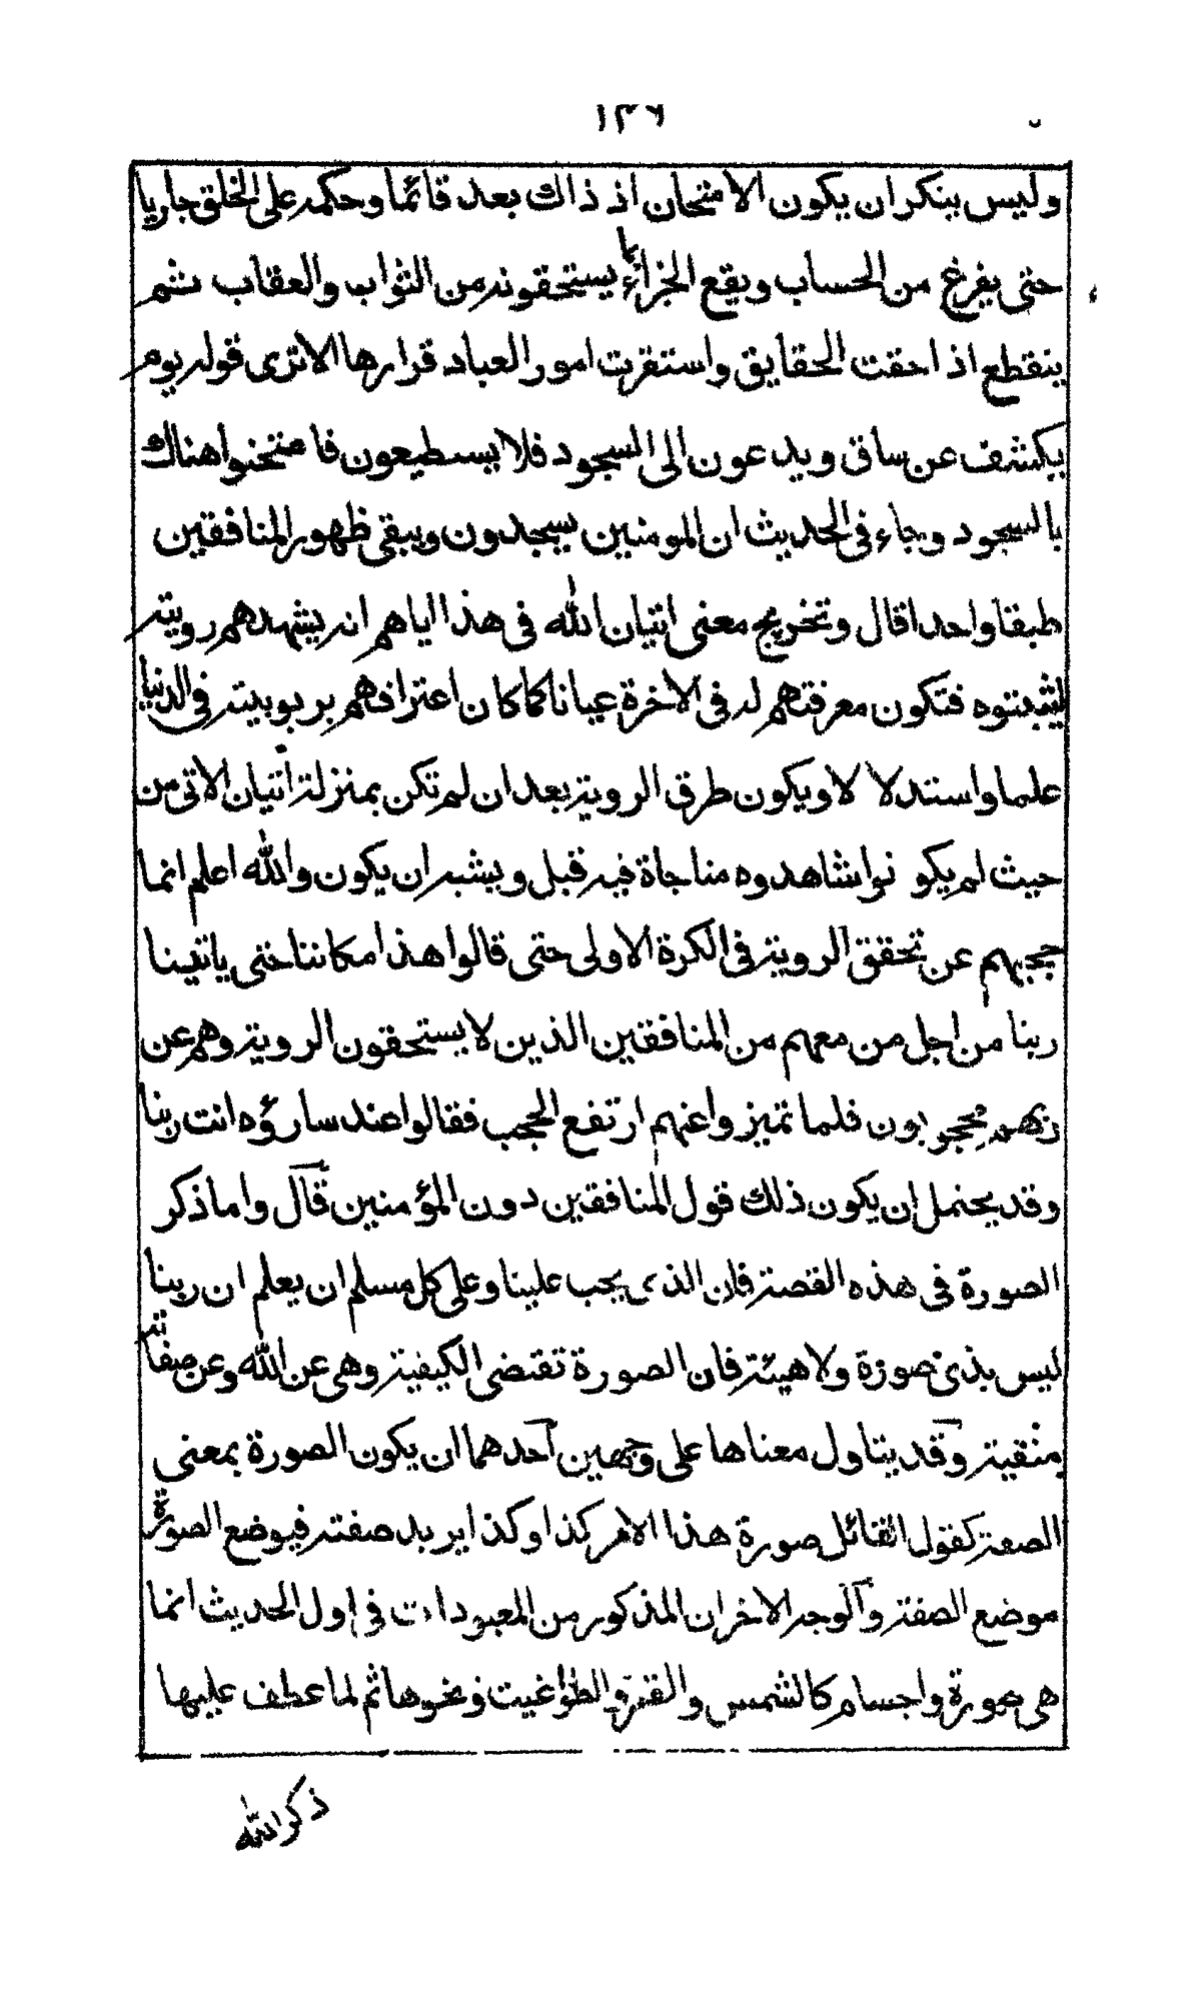 ١٣٦
وليس ينكر ان يكون الامتحان اذ ذاك بعد قائما وحكمه على الخلق جاريا
حتى يفرغ من الحساب ويقع الجزاء بما يستحقونه من الثواب والعقاب ثم
ينقطع اذا حقت الحقايق واستقرت امور العباد قرارها الا ترى قوله يوم
يكشف عن ساق ويدعون الى السجود فلا يسطيعون فامتحنوا هناك
بالسجود وجاء فى الحديث ان المومنين يسجدون ويبقى ظهور المنافقين
طبقا واحدا قال وتخريج معنى اتيان الله فى هذا اياهم انه يشهدهم رويته
ليثبتوه فتكون معرفتهم له فى الاخرة عيانا كما كان اعترافهم بربوبيته فى الدنيا
علما واستدلالا ويكون طرق الروية بعد ان لم تكن بمنزلة اتيان الاتى من
حيث لم يكونوا شاهدوه مناجاة فيه قبل ويشبه ان يكون والله اعلم انما
حجبهم عن تحقق الروية فى الكرة الاولى حتى قالوا هذا امكاننا حتى ياتينا
ربنا من اجل من معهم من المنافقين الذين لا يستحقون الروية وهم عن
ربهم محجوبون فلما تميزوا عنهم ارتفع الحجب فقالوا عند ساروه انت ربنا
وقد يحتمل ان يكون ذلك قول المنافقين دون المؤمنين قال واما ذكر
الصورة فى هذه القصة فان الذى يجب علينا وعلى كل مسلم ان يعلم ان ربنا
ليس بذى صورة ولا هيئة فان الصورة تقتضى الكيفية وهى عن الله وعن صفاته
منفية وقد يتاول معناها على وجهين احدهما ان يكون الصورة بمعنى
الصفة كقول القائل صورة هذا الامر كذا وكذا يريد صفته فيوضع الصورة
موضع الصفة والوجه الاخر ان المذكور من المعبودات فى اول الحديث انما
هى صورة واجسام كالشمس والقمر والطواغيت ونحوها ثم لما عطف عليها
ذكر الله